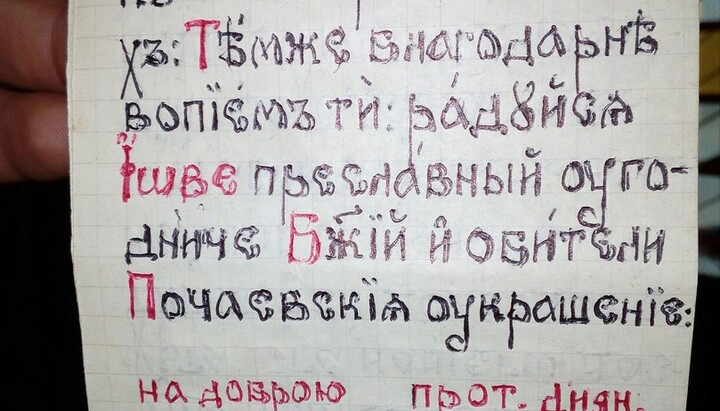 хъ: Тѣ́мже благода́рнѣ
вопїе́мъ тѝ: ра́дꙋйсѧ
І҆́ѡве пресла́вный оуго-
дниче Бж҃їй и҆ оби́тели
Почаевскїѧ оукраше́нїе:
на доброю прот. диян.